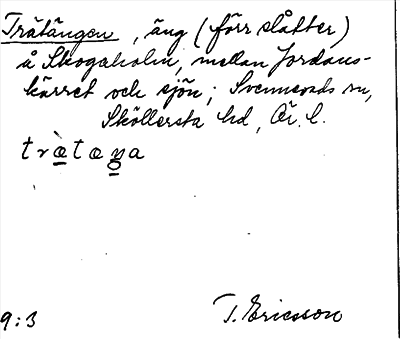 Trätängen, äng (förr slåtter)
å Skogaholm, mellan Jordans-
kärret och sjön; Svennevads sn,
Sköllersta hd, Ör. l.
trætæŋa
9:3 T. Ericsson